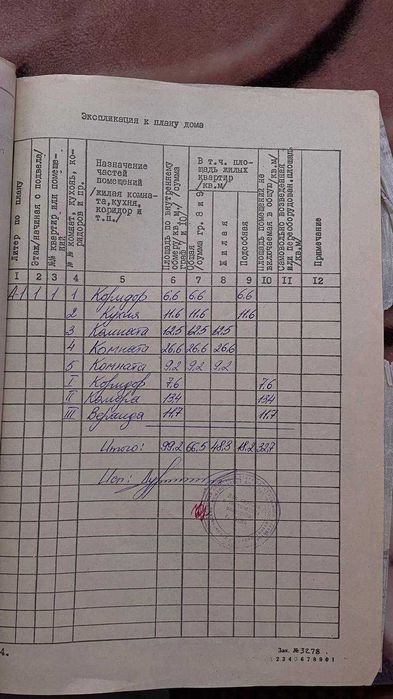 Экспликация к плану дома
Литер по плану
Этаж/начиная с подвала/
№№ квартир или помеще-
ний
№№ комнат, кухонь, ко-
ридоров и пр.
Назначение
частей
помещений
/жилая комна-
та, кухня,
коридор и
т.п./
Площадь по внутреннему
обмеру/кв.м./ /сумма
граф 7 и 10/
В т.ч. пло-
щадь жилых
квартир
/кв.м/
Общая
/сумма гр. 8 и 9/
Жилая
Подсобная
Площадь помещений не
включаемая в общую/кв.м/
Самовольно возведенная
или переоборудован.площадь
/кв.м/
Примечание
1 2 3 4 5 6 7 8 9 10 11 12
А-1 1 1 1 Коридор 6.6 6.6 6.6
2 Кухня 11.6 11.6 11.6
3 Комната 12.5 12.5 12.5
4 Комната 26.6 26.6 26.6
5 Комната 9.2 9.2 9.2
I Коридор 7.6 7.6
II Камора 13.4 13.4
III Веранда 11.7 11.7
Итого: 99.2 66.5 48.3 18.2 32.7
Исп:
4.
Зак. №3278.
1 2 3 4 5 6 7 8 9 0 1